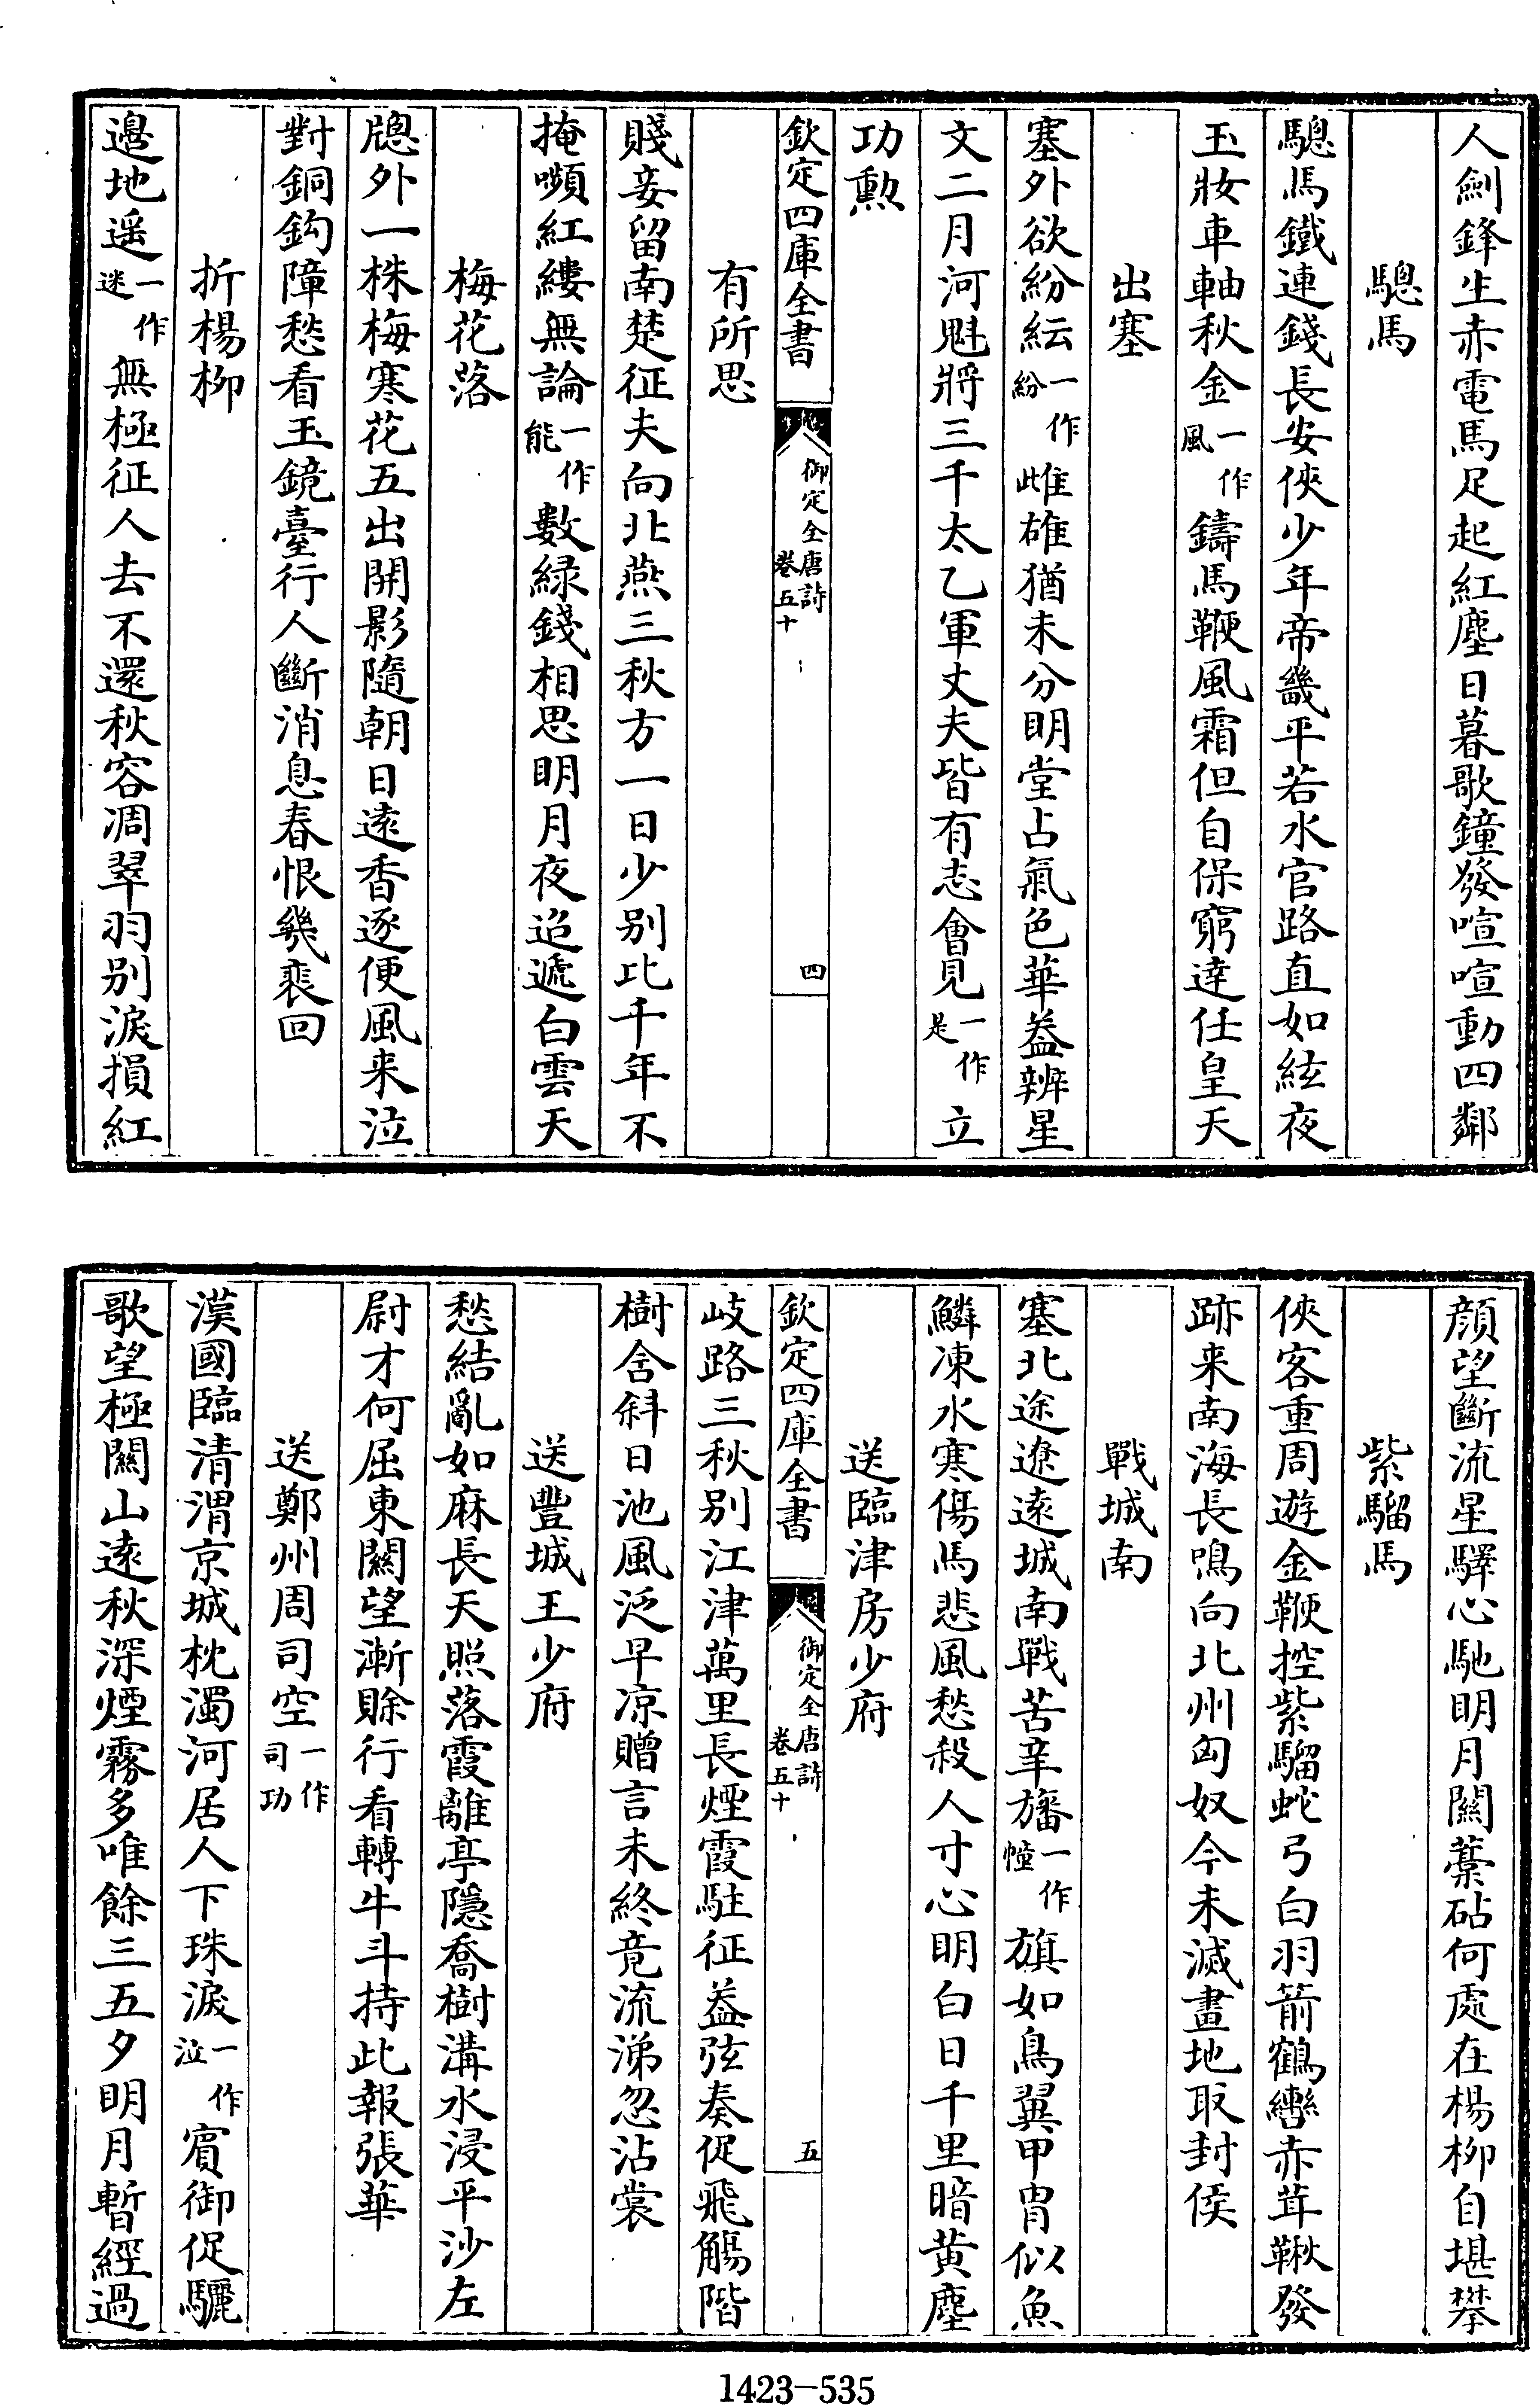 人劍鋒生赤電馬足起紅塵日暮歌鐘發喧喧動四鄰
驄馬
驄馬鐵連錢長安俠少年帝畿平若水官路直如絃夜
玉妝車軸秋金一作風鑄馬鞭風霜但自保窮達任皇天
出塞
塞外欲紛紜一作紛雌雄猶未分明堂占氣色華葢辨星
文二月河魁將三千太乙軍丈夫皆有志會見一作是立
功勲
欽定四庫全書
御定全唐詩
卷五十
四
有所思
賤妾留南楚征夫向北燕三秋方一日少别比千年不
掩嚬紅縷無論一作能數緑錢相思明月夜迢遞白雲天
梅花落
牎外一株梅寒花五出開影隨朝日逺香逐便風来泣
對銅鈎障愁看玉鏡臺行人斷消息春恨幾裴回
折楊柳
邉地遥一作迷無極征人去不還秋容凋翠羽别淚損紅
顔望斷流星驛心馳明月關藁砧何處在楊柳自堪攀
紫騮馬
俠客重周遊金鞭控紫騮蛇弓白羽箭鶴轡赤茸鞦發
跡来南海長鳴向北州匈奴今未滅畫地取封侯
戰城南
塞北途遼逺城南戰苦辛旛一作幢旗如鳥翼甲胄似魚
鱗凍水寒傷馬悲風愁殺人寸心明白日千里暗黄塵
送臨津房少府
欽定四庫全書
御定全唐詩
卷五十
五
岐路三秋别江津萬里長煙霞駐征葢弦奏促飛觴階
樹含斜日池風泛早凉贈言未終竟流涕忽沾裳
送豐城王少府
愁結亂如麻長天照落霞離亭隱喬樹溝水浸平沙左
尉才何屈東關望漸賒行看轉牛斗持此報張華
送鄭州周司空一作司功
漢國臨清渭京城枕濁河居人下珠淚一作泣賓御促驪
歌望極關山逺秋深煙霧多唯餘三五夕明月暫經過
1423-535